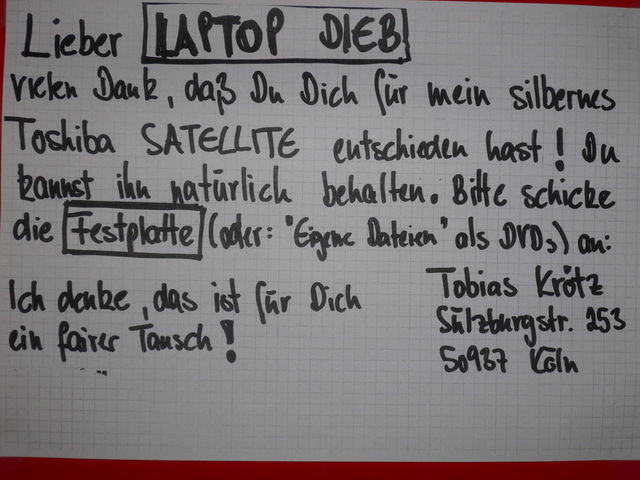 Lieber LAPTOP DIEB
vielen Dank, daß Du Dich für mein silbernes
Toshiba SATELLITE entschieden hast! Du
kannst ihn natürlich behalten. Bitte schicke
die Festplatte (oder: "Eigene Dateien" als DVDs) an:
Ich denke, das ist für Dich
ein fairer Tausch!
Tobias Krötz
Sülzburgstr. 253
50937 Köln